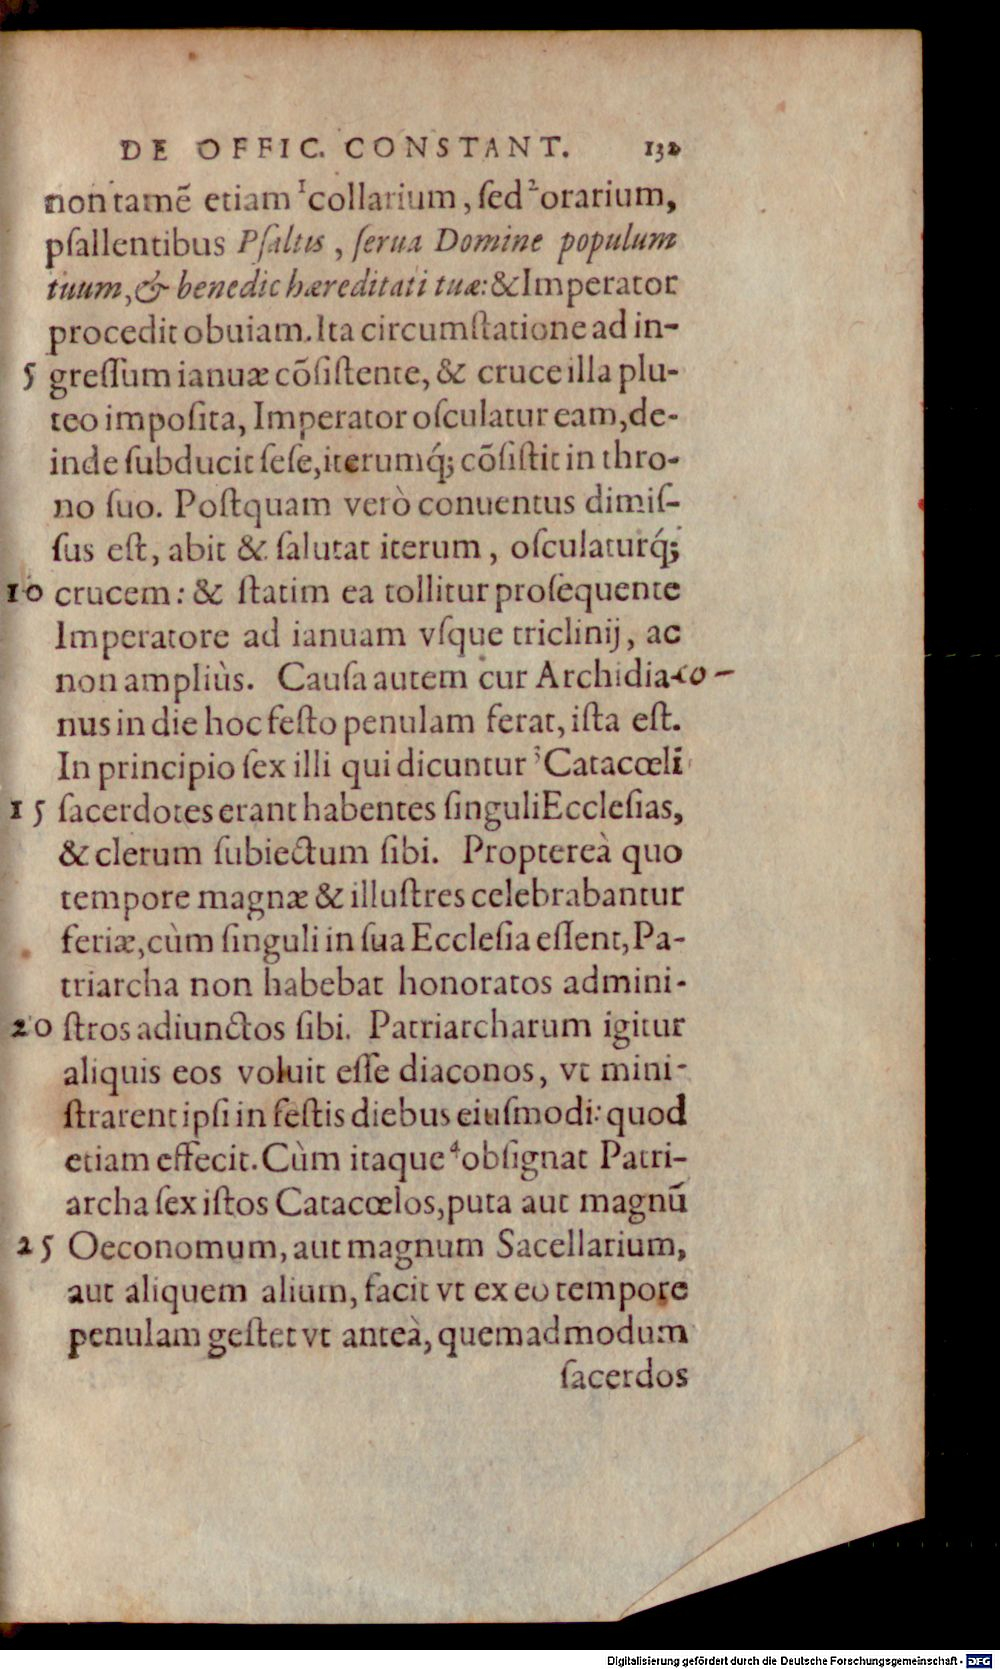 DE OFFIC. CONSTANT. 132
non tamẽ etiam ¹collarium, ſed ²orarium,
pſallentibus Pſaltis, ſerua Domine populum
tuum, & benedic hæreditati tuæ: & Imperator
procedit obuiam. Ita circumſtatione ad in-
5 greſſum ianuæ cõſiſtente, & cruce illa plu-
teo impoſita, Imperator oſculatur eam, de-
inde ſubducit ſeſe, iterumq́; cõſiſtit in thro-
no ſuo. Poſtquam verò conuentus dimiſ-
ſus eſt, abit & ſalutat iterum, oſculaturq́;
10 crucem: & ſtatim ea tollitur proſequente
Imperatore ad ianuam vſque triclinij, ac
non ampliùs. Cauſa autem cur Archidiaco-
nus in die hoc feſto penulam ferat, iſta eſt.
In principio ſex illi qui dicuntur ³Catacœli
15 ſacerdotes erant habentes ſinguli Eccleſias,
& clerum ſubiectum ſibi. Proptereà quo
tempore magnæ & illuſtres celebrabantur
feriæ, cùm ſinguli in ſua Eccleſia eſſent, Pa-
triarcha non habebat honoratos admini-
20 ſtros adiunctos ſibi. Patriarcharum igitur
aliquis eos voluit eſſe diaconos, vt mini-
ſtrarent ipſi in feſtis diebus eiuſmodi: quod
etiam effecit. Cùm itaque ⁴obſignat Patri-
archa ſex iſtos Catacœlos, puta aut magnũ
25 Oeconomum, aut magnum Sacellarium,
aut aliquem alium, facit vt ex eo tempore
penulam geſtet vt anteà, quemadmodum
ſacerdos
Digitalisierung gefördert durch die Deutsche Forschungsgemeinschaft - DFG